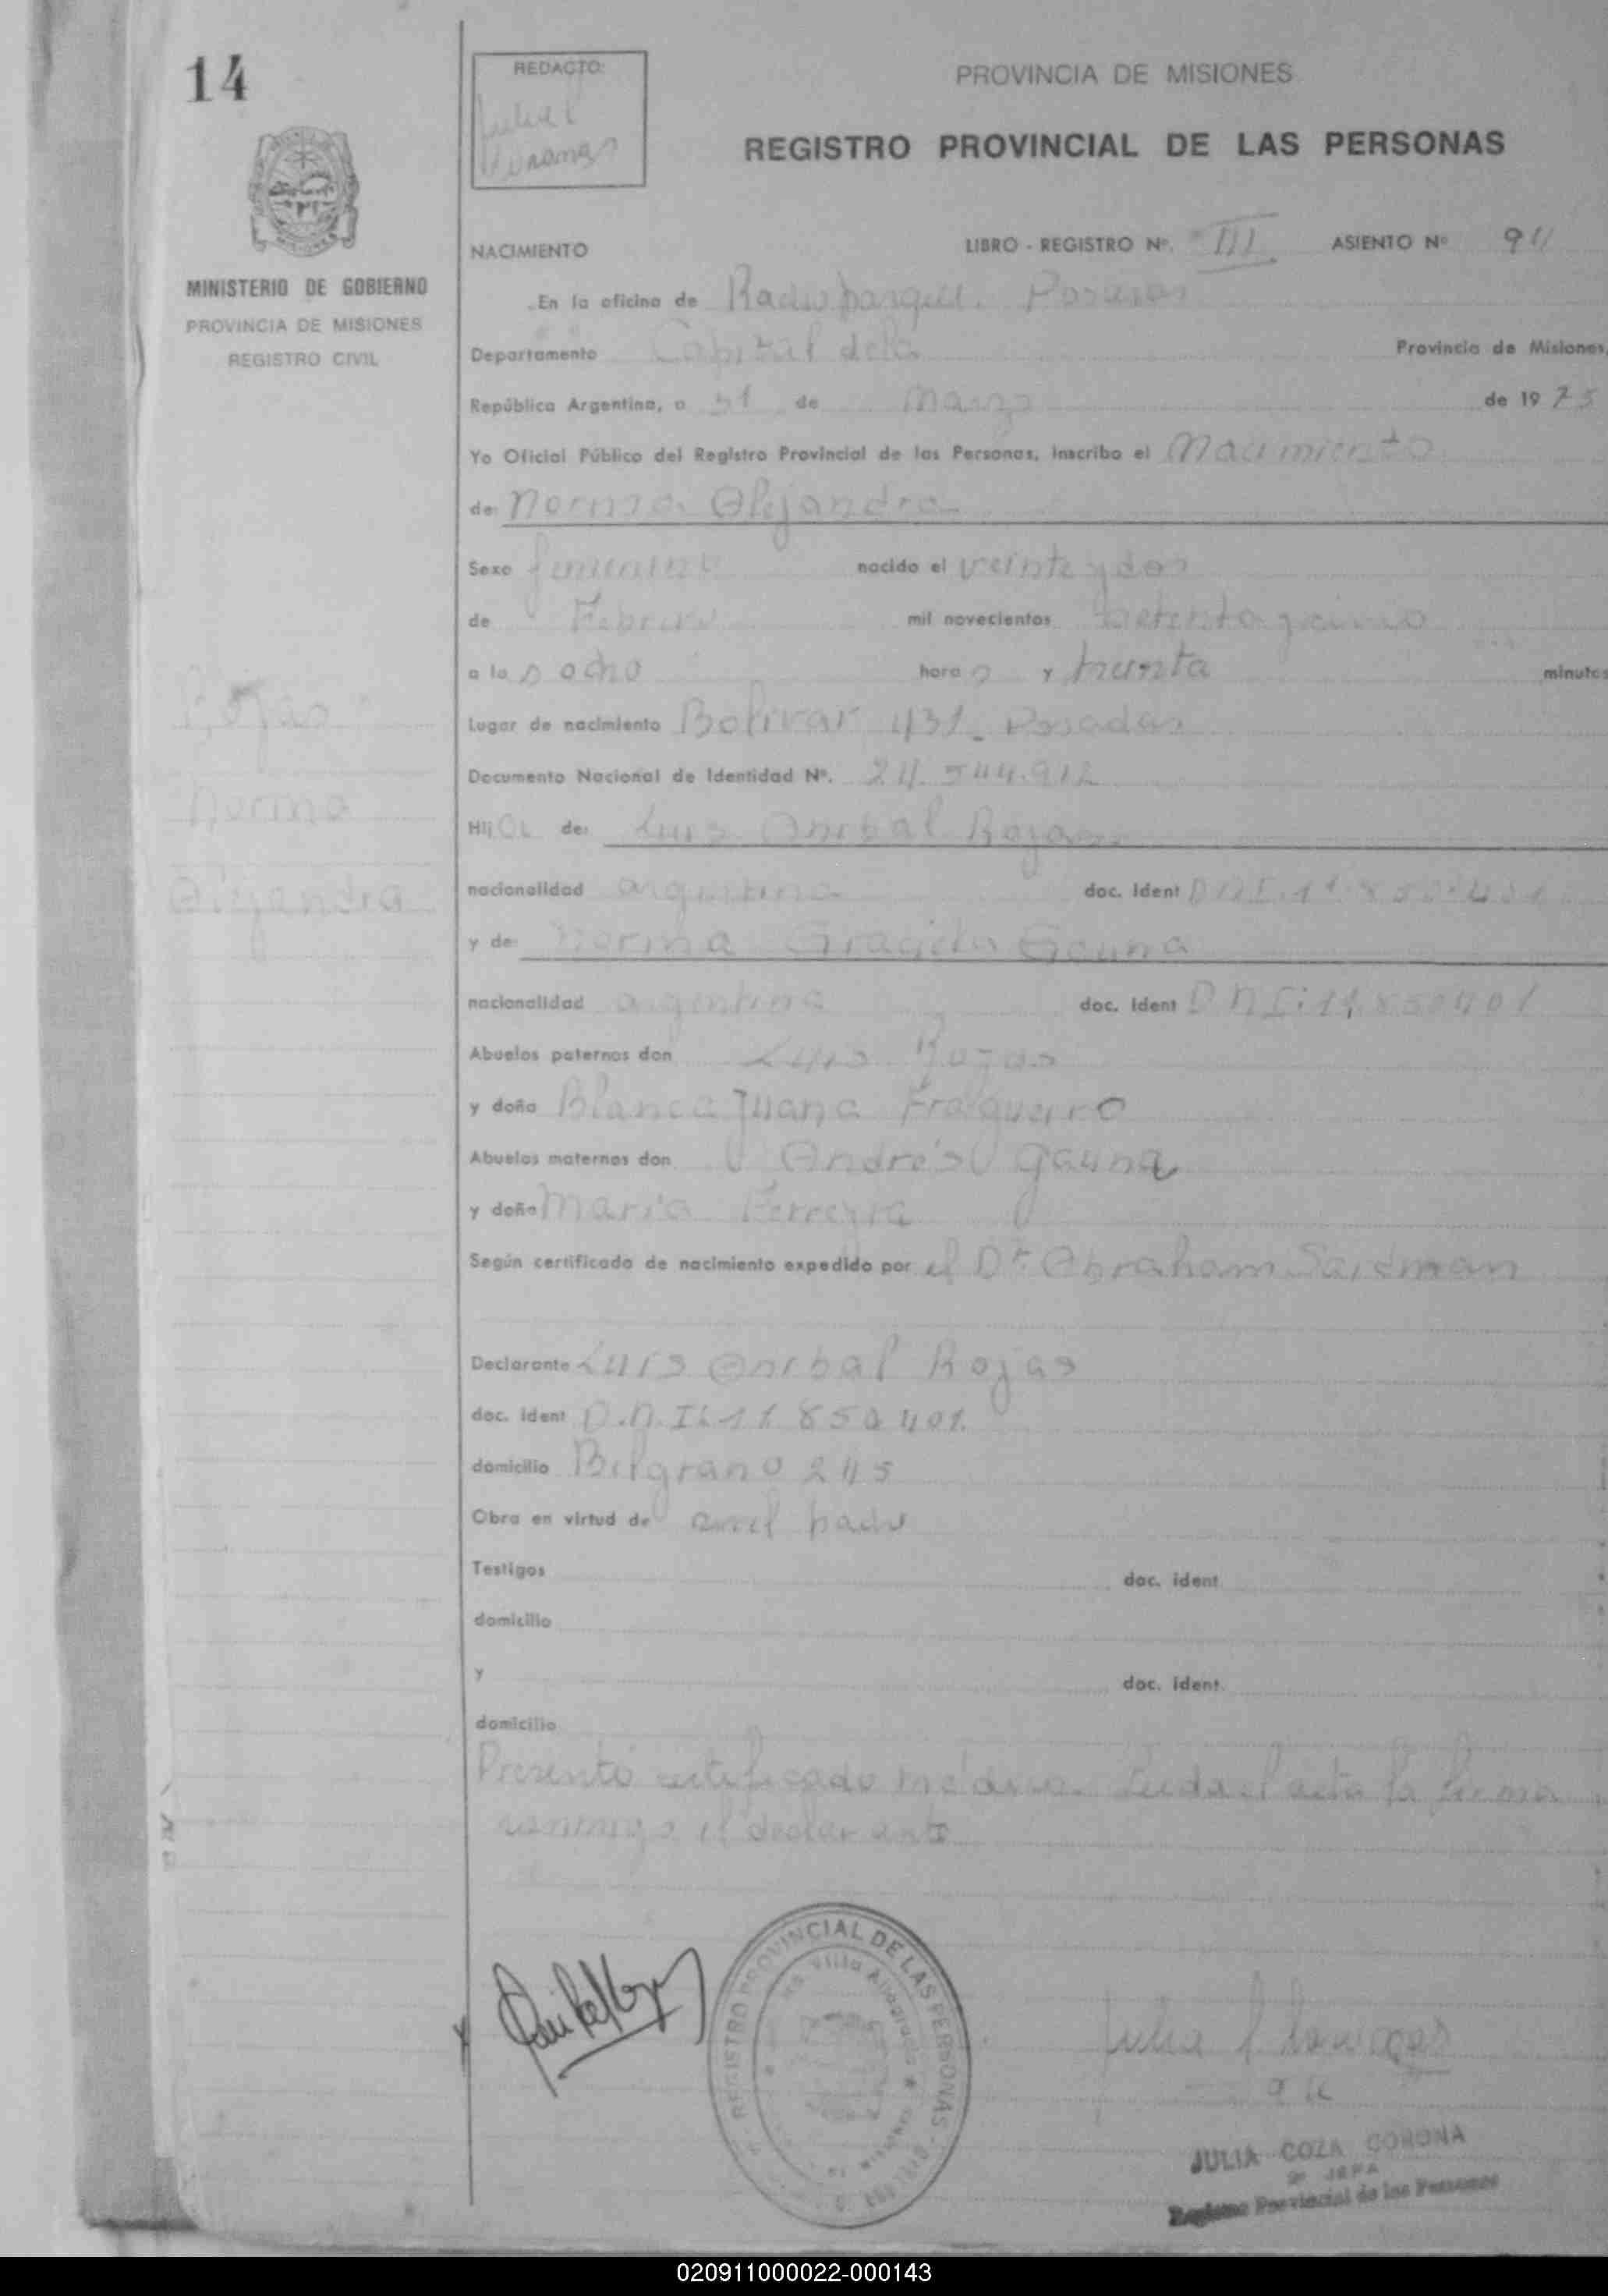 14
REDACTO:
Julia C
PROVINCIA DE MISIONES
REGISTRO PROVINCIAL DE LAS PERSONAS
MINISTERIO DE GOBIERNO
PROVINCIA DE MISIONES
REGISTRO CIVIL
NACIMIENTO LIBRO - REGISTRO Nº. III ASIENTO Nº 94
En la oficina de Posadas
Departamento Capital de la Provincia de Misiones,
República Argentina, a 31 de Marzo de 1975
Yo Oficial Público del Registro Provincial de las Personas, inscribo el Nacimiento
de: Norma Alejandra
Sexo femenino nacido el veinte y dos
de Febrero mil novecientos setenta y cinco
a las ocho horas y treinta minutos
Rojas
Norma
Alejandra
Lugar de nacimiento Bolivar 431 - Posadas
Documento Nacional de Identidad Nº. 24.544.912
Hija de: Luis Anibal Rojas
nacionalidad argentina doc. Ident D.N.I. 11.850.401
y de: Norma Graciela Gauna
nacionalidad argentina doc. Ident D N I: 11.850401
Abuelos paternos don Luis Rojas
y doña Blanca Juana Fragueiro
Abuelos maternos don Andrés Gauna
y doña Maria Ferreyra
Según certificado de nacimiento expedido por el Dr Abraham Saidman
Declarante Luis Anibal Rojas
doc. ident D.N.I. 11 850 401.
domicilio Belgrano 245
Obra en virtud de ser el padre
Testigos doc. ident.
domicilio
y doc. ident.
domicilio
Presentó certificado médico. Leida el acta la firma
conmigo el declarante
REGISTRO PROVINCIAL DE LAS PERSONAS
Villa
Julia
JULIA COZA CORONA
JEFA
Registro Provincial de las Personas
020911000022-000143